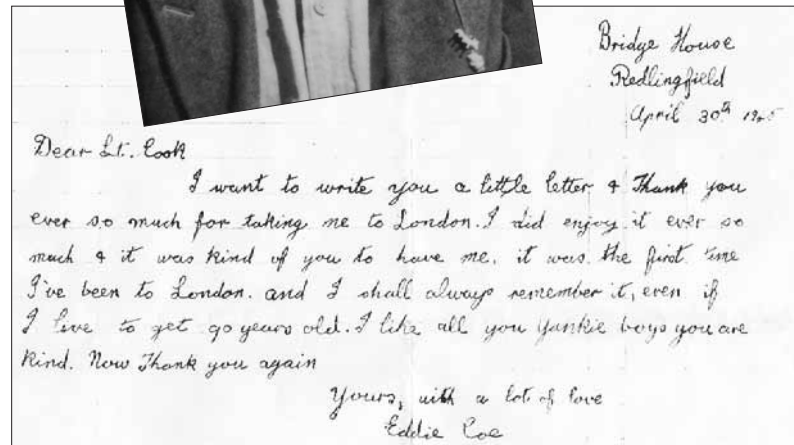 Bridge House
Redlingfield
April 30th 1945
Dear Lt. Cook
I want to write you a little letter & Thank you
ever so much for taking me to London. I did enjoy it ever so
much & it was kind of you to have me. it was the first time
I've been to London. and I shall always remember it, even if
I live to get 90 years old. I like all you yankie boys you are
kind. Now Thank you again
Yours, with a lot of love
Eddie Coe